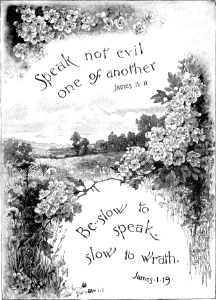 Speak not evil
one of another
James
Be slow to
speak,
slow to wrath.
James·1·19·